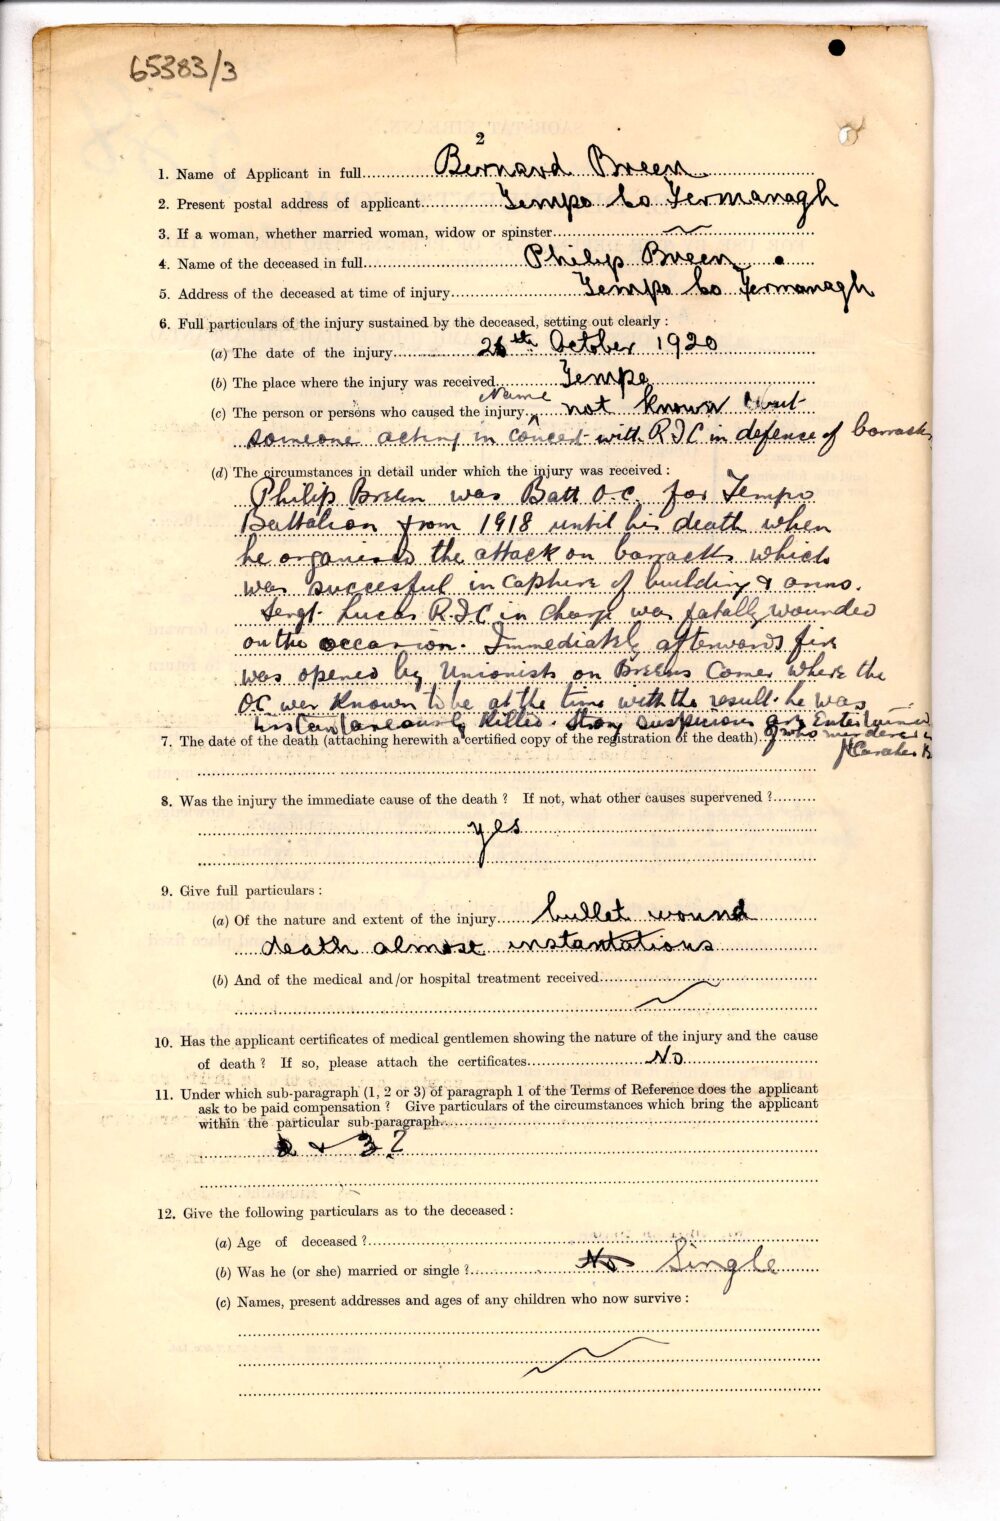 65383/3
2
1. Name of Applicant in full Bernard Breen
2. Present postal address of applicant Tempo Co Fermanagh
3. If a woman, whether married woman, widow or spinster
4. Name of the deceased in full Philip Breen
5. Address of the deceased at time of injury Tempo Co Fermanagh
6. Full particulars of the injury sustained by the deceased, setting out clearly :
(a) The date of the injury 26th October 1920
(b) The place where the injury was received Tempo
Name
(c) The person or persons who caused the injury not known but
someone acting in concert with R.I.C in defense of barracks
(d) The circumstances in detail under which the injury was received :
Philip Breen was Batt O.C. for Tempo
Battalion from 1918 until his death when
he organised the attack on barracks which
was succesful in capture of building & arms.
Sergt. Lucas R.I.C in charge was fatally wounded
on the occasion. Immediately afterwards fire
was opened by Unionists on Breens Corner where the
O.C. was known to be at the time with the result he was
instantaneously killed. Strong suspicions are Entertained
7. The date of the death (attaching herewith a certified copy of the registration of the death). of who murdered
8. Was the injury the immediate cause of the death ? If not, what other causes supervened ?
yes
9. Give full particulars :
(a) Of the nature and extent of the injury bullet wound
death almost instantations
(b) And of the medical and/or hospital treatment received
10. Has the applicant certificates of medical gentlemen showing the nature of the injury and the cause
of death ? If so, please attach the certificates No
11. Under which sub-paragraph (1, 2 or 3) of paragraph 1 of the Terms of Reference does the applicant
ask to be paid compensation ? Give particulars of the circumstances which bring the applicant
within the particular sub-paragraph
2 & 3?
12. Give the following particulars as to the deceased :
(a) Age of deceased ?
(b) Was he (or she) married or single ? No Single
(c) Names, present addresses and ages of any children who now survive :